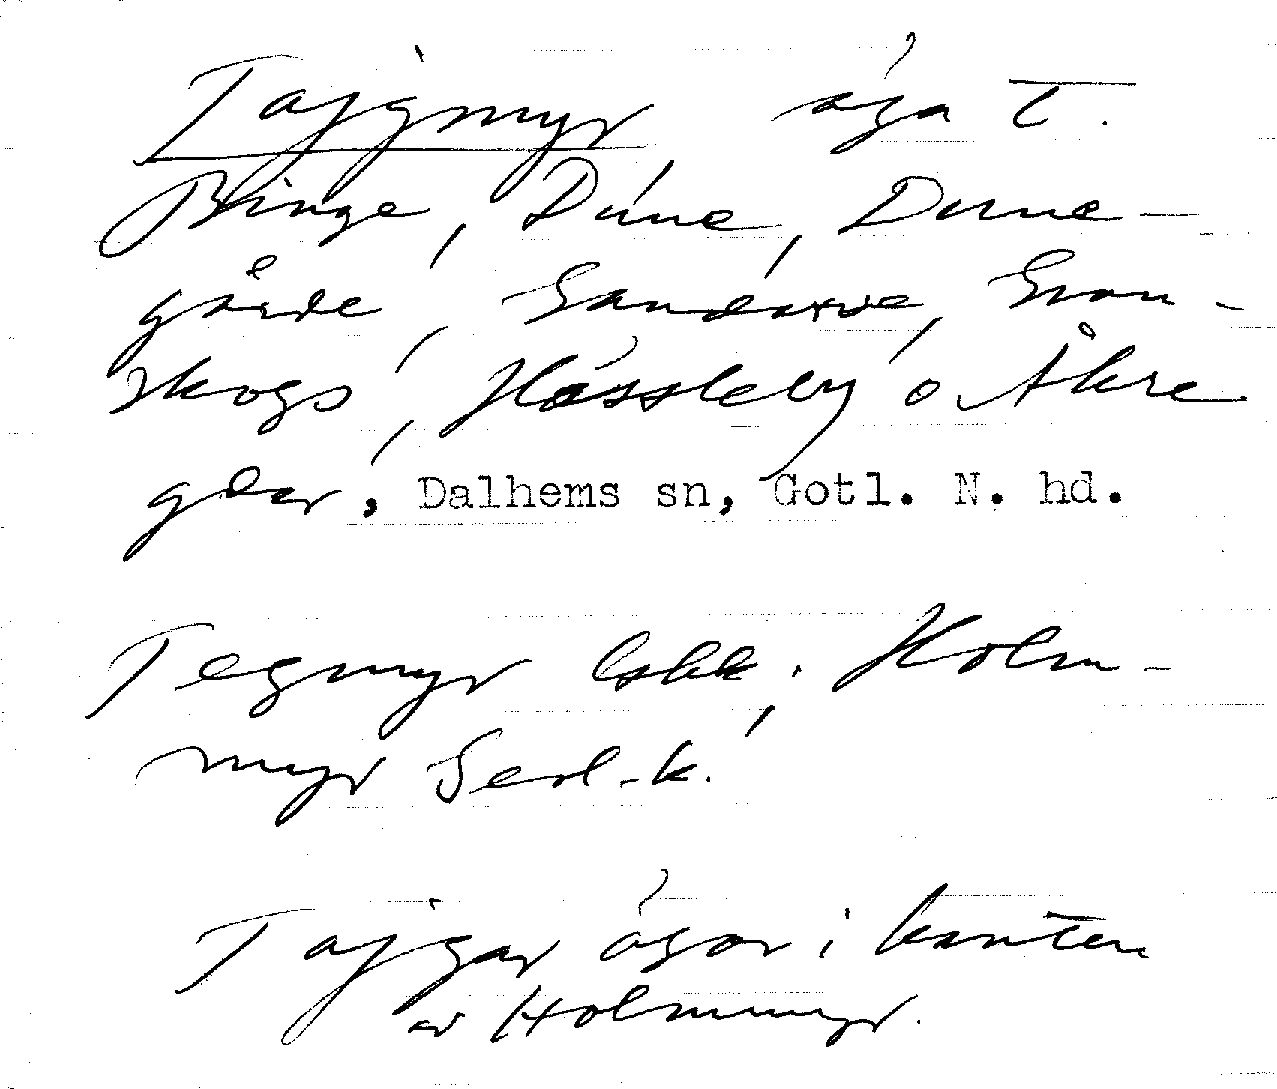 Tajgmyr äga t.
Binge, Dúne, Dune-
gårde, Sandarve, Gran-
skogs, Hässleby o. Åkre
gear, Dalhems sn, Gotl. N. hd.
Tegmyr lskk; Holm-
myr Geol.k.
Tajgar ägor i kanten
av Holmmyr.